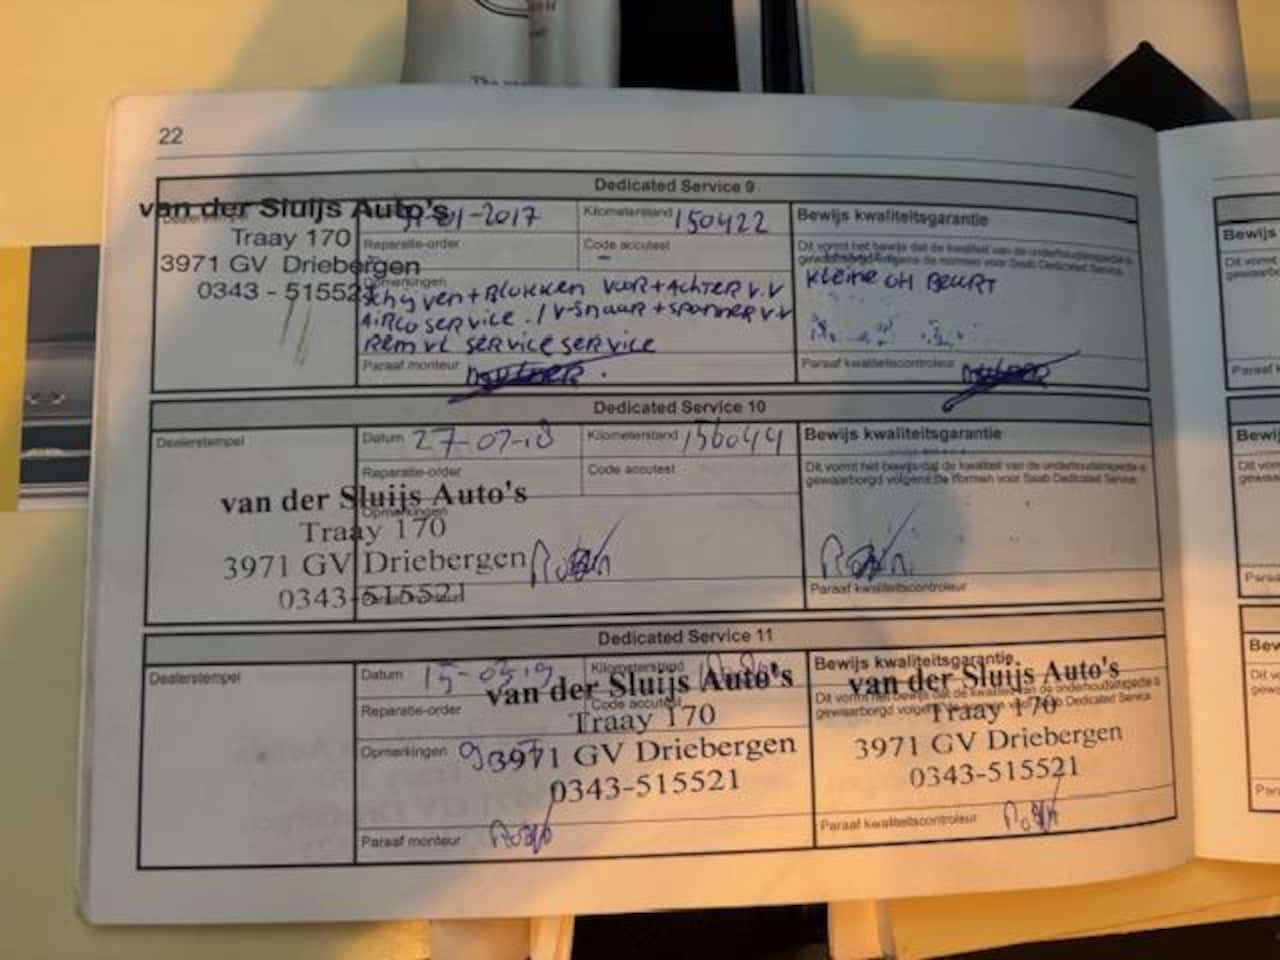 22
Dedicated Service 9
van der Sluijs Auto's
Traay 170
3971 GV Driebergen
0343 - 515521
-01-2017
Kilometerstand 150422
Reparatie-order
Code accutest
-
Opmerkingen
Schijven + Blokken voor + Achter v.v
Airco service. / V-snaar + spanner v.v
Remvl service service
Paraaf monteur
Bewijs kwaliteitsgarantie
Dit vormt het bewijs dat de kwaliteit van de onderhoudsinspectie is
gewaarborgd volgens de normen voor Saab Dedicated Service
Kleine OH Beurt
Paraaf kwaliteitscontroleur
Dedicated Service 10
Dealerstempel
van der Sluijs Auto's
Traay 170
3971 GV Driebergen
0343-515521
Datum 27-07-18
Kilometerstand 156044
Reparatie-order
Code accutest
Opmerkingen
Bewijs kwaliteitsgarantie
Dit vormt het bewijs dat de kwaliteit van de onderhoudsinspectie is
gewaarborgd volgens de normen voor Saab Dedicated Service
Paraaf kwaliteitscontroleur
Dedicated Service 11
Dealerstempel
Datum 15-03-19
Kilometerstand
Reparatie-order
Code accutest
Opmerkingen
van der Sluijs Auto's
Traay 170
3971 GV Driebergen
0343-515521
Paraaf monteur
Bewijs kwaliteitsgarantie
Dit vormt het bewijs dat de kwaliteit van de onderhoudsinspectie is
gewaarborgd volgens de normen voor Saab Dedicated Service
van der Sluijs Auto's
Traay 170
3971 GV Driebergen
0343-515521
Paraaf kwaliteitscontroleur
Bewijs
Dit vormt
gewaarb
Paraaf
Bewij
Dit vor
gewaa
Paraa
Bew
Dit v
gew
Par